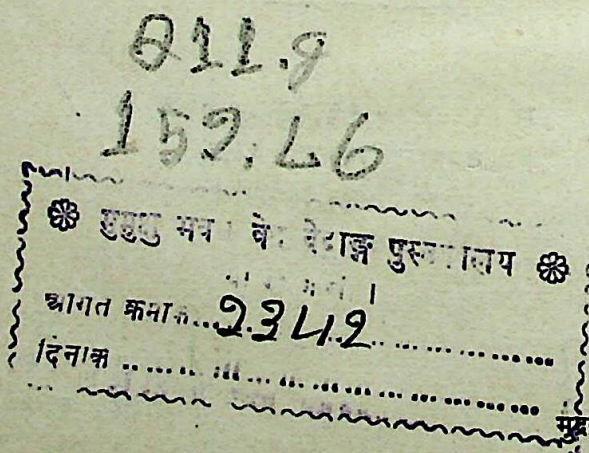 Q11.9
152.L6
❀ मुमुक्षु भवन वेद वेदाङ्ग पुस्तकालय ❀
आगत क्रमांक...2342...
दिनांक ...
मुद्र